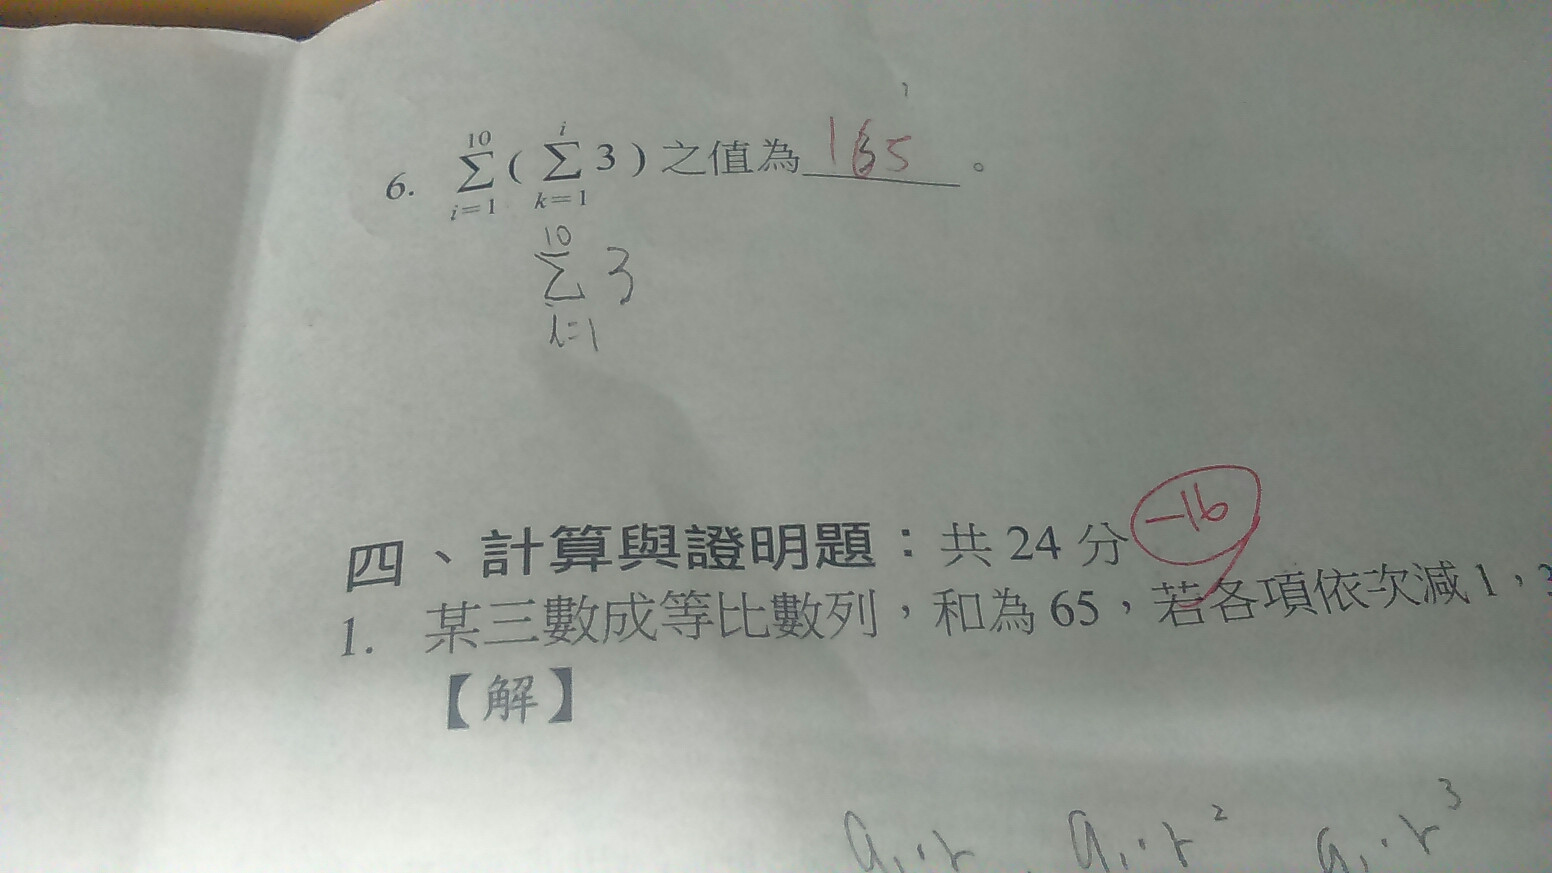 6. \sum_{i=1}^{10} ( \sum_{k=1}^{i} 3 ) 之值為 165 。
\sum_{i=1}^{10} 3
四、計算與證明題：共 24 分 -16
1. 某三數成等比數列，和為 65，若各項依次減 1，3
【解】
a₁·r a₁·r² a₁·r³